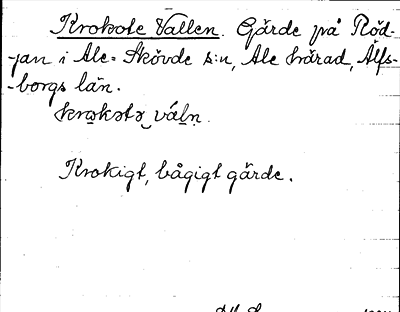 Krokote Vallen. Gärde på Röd-
-jan i Ale-Skövde s:n, Ale härad, Älfs-
-borgs län.
krokɔtə váln.
Krokigt, bågigt gärde.